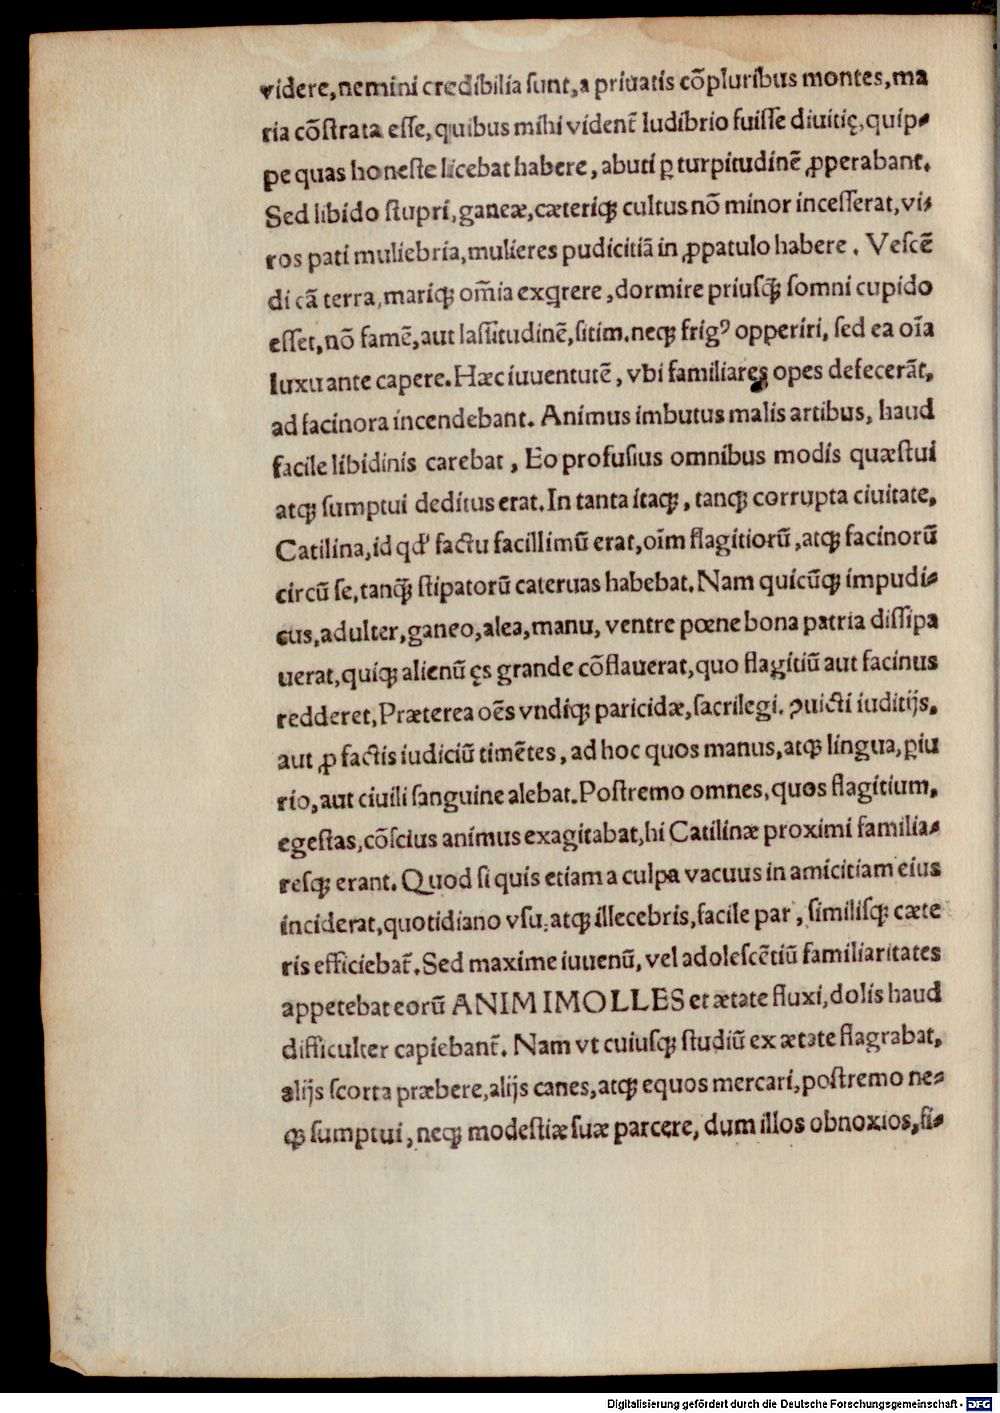 videre,nemini credibilia sunt,a priuatis cõpluribus montes,ma
ria cõstrata esse,quibus mihi vident᷑ ludibrio fuisse diuitię,quip-
pe quas honeste licebat habere,abuti ꝑ turpitudinẽ ꝓperabant.
Sed libido stupri,ganeæ,cæteriqꝫ cultus nõ minor incesserat,vi-
ros pati muliebria,mulieres pudicitiã in ꝓpatulo habere. Vescẽ
di cã terra,mariqꝫ om̃ia exqrere,dormire priusqꝫ̃ somni cupido
esset,nõ famẽ,aut lassitudinẽ,sitim.neqꝫ frigꝰ opperiri, sed ea oĩa
luxu ante capere.Hæc iuuentutẽ, vbi familiares opes defecerãt,
ad facinora incendebant. Animus imbutus malis artibus, haud
facile libidinis carebat, Eo profusius omnibus modis quæstui
atqꝫ sumptui deditus erat.In tanta itaqꝫ, tanqꝫ corrupta ciuitate,
Catilina,id qd' factu facillimũ erat,oĩm flagitiorũ,atqꝫ facinorũ
circũ se,tanqꝫ̃ stipatorũ cateruas habebat.Nam quicũqꝫ impudi-
cus,adulter,ganeo,alea,manu, ventre pœne bona patria dissipa
uerat,quiqꝫ alienũ ęs grande cõflauerat,quo flagitiũ aut facinus
redderet,Præterea oẽs vndiqꝫ paricidæ,sacrilegi. ꝯuicti iuditijs,
aut ꝓ factis iudiciũ timẽtes, ad hoc quos manus,atqꝫ lingua,ꝑiu
rio,aut ciuili sanguine alebat.Postremo omnes,quos flagitium,
egestas,cõscius animus exagitabat,hi Catilinæ proximi familia-
resqꝫ erant. Quod si quis etiam a culpa vacuus in amicitiam eius
inciderat,quotidiano vsu.atqꝫ illecebris,facile par, similisqꝫ cæte
ris efficiebat᷑.Sed maxime iuuenũ, vel adolescẽtiũ familiaritates
appetebat eorũ ANIMI MOLLES et ætate fluxi,dolis haud
difficulter capiebant᷑. Nam vt cuiusqꝫ studiũ ex ætate flagrabat,
alijs scorta præbere,alijs canes,atqꝫ equos mercari,postremo ne-
qꝫ sumptui,neqꝫ modestiæ suæ parcere, dum illos obnoxios,fi-
Digitalisierung gefördert durch die Deutsche Forschungsgemeinschaft - DFG